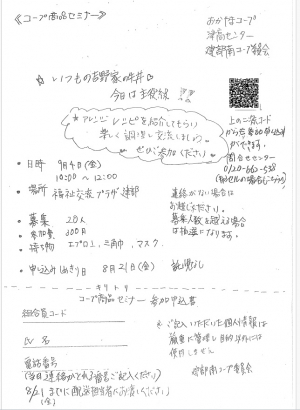 《コープ商品セミナー》
おかやまコープ
津高センター
建部南コープ委員会
☆ いつもの吉野家の牛丼
今日は主役級!!
アレンジレシピを紹介してもらい
楽しく調理し交流しましょう。
ぜひご参加ください。
上の二次元コード
から参加申込み
ができます。
問合せセンター
・日時 9月4日(金)
10:00 ~ 12:00
・場所 福祉交流プラザ建部
・募集 20人
・参加費 300円
・持ち物 エプロン、三角巾、マスク
連絡がない場合は
お越しください。
募集人数を超える場合
は抽選になります。
・申し込みしめ切り日 8月21日(金)
託児なし
キリトリ
コープ商品セミナー 参加申込書
組合員コード
氏名
電話番号
(当日連絡がとれる番号ご記入ください)
8/21までに配送担当者にお渡しください)
(金)
※ご記入いただいた個人情報は
厳重に管理し目的以外には
使用しません
建部南コープ委員会